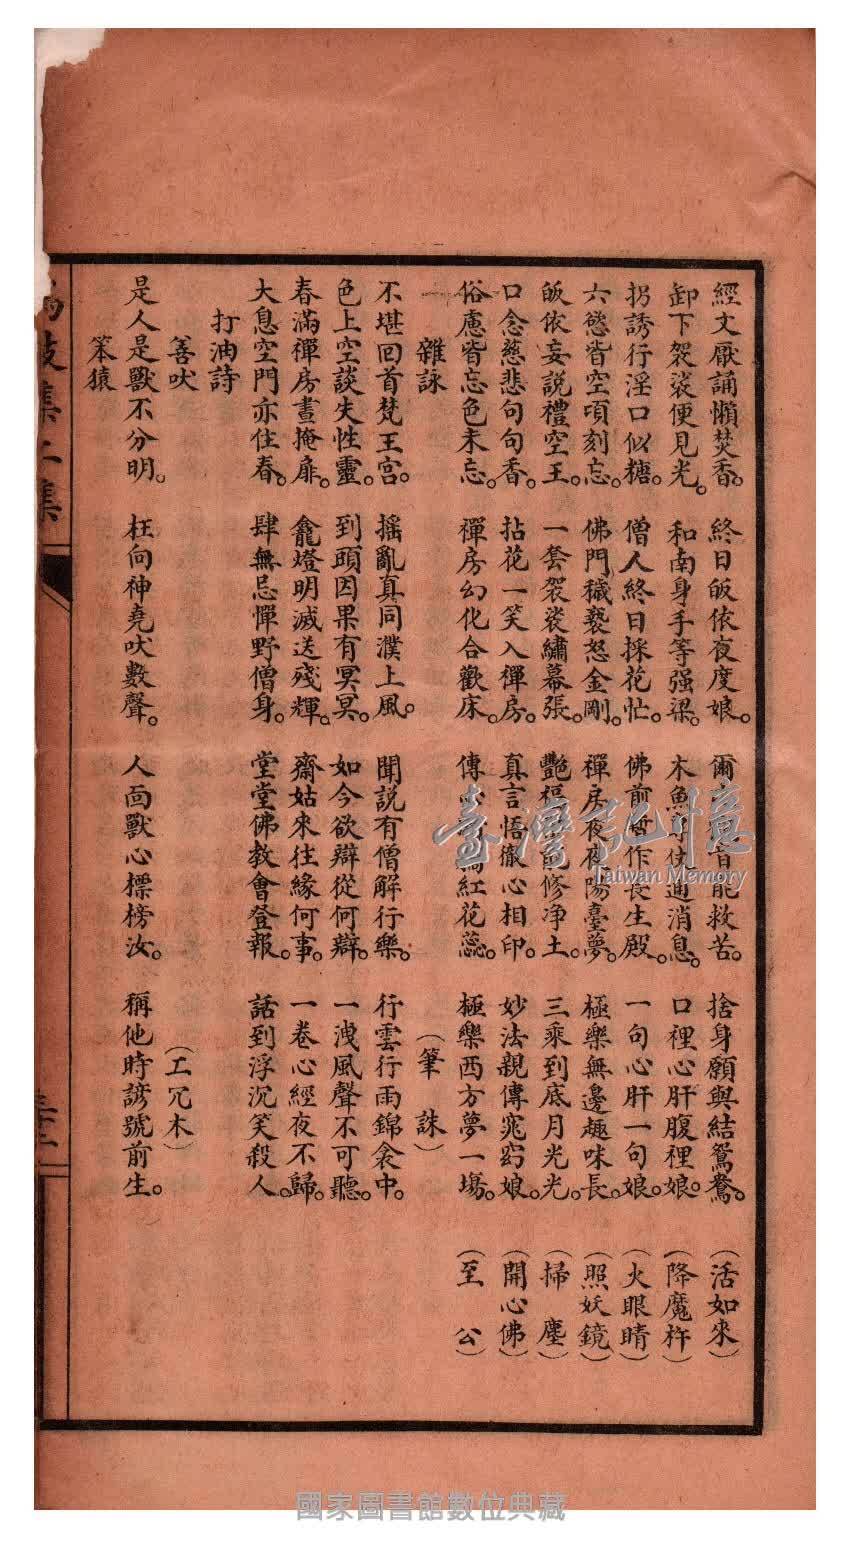 經文厭誦懶焚香。終日皈依夜度娘。爾音能救苦。捨身願與結鴛鴦。(活如來)
卸下袈裟便見光。和南身手等强梁。木魚通消息。口裡心肝腹裡娘。(降魔杵)
拐誘行淫口似糖。僧人終日採花忙。佛前暫作長生殿。一句心肝一句娘。(火眼睛)
六慾皆空頃刻忘。佛門穢褻怒金剛。禪房夜夜陽臺夢。極樂無邊趣味長。(照妖鏡)
皈依妄說禮空王。一套袈裟繡幕張。艷福修净土。三乘到底月光光。(掃塵)
口念慈悲句句香。拈花一笑入禪房。真言悟徹心相印。妙法親傳窕窈娘。(開心佛)
俗慮皆忘色未忘。禪房幻化合歡床。傳紅花蕊。極樂西方夢一塲。(至公)
雜詠 (筆誅)
不堪回首梵王宮。搖亂真同濮上風。聞説有僧解行樂。行雲行雨錦衾中。
色上空談失性靈。到頭因果有冥冥。如今欲辯從何辯。一洩風聲不可聽。
春滿禪房晝掩扉。龕燈明滅送殘輝。齋姑來往緣何事。一卷心經夜不歸。
大息空門亦住春。肆無忌憚野僧身。堂堂佛教會登報。話到浮沉笑殺人。
打油詩
善吠 (工冗木)
是人是獸不分明。枉向神堯吠數聲。人面獸心標榜汝。稱他時諺號前生。
笨猿
鼓集二集
國家圖書館數位典藏
臺灣記憶
Taiwan Memory